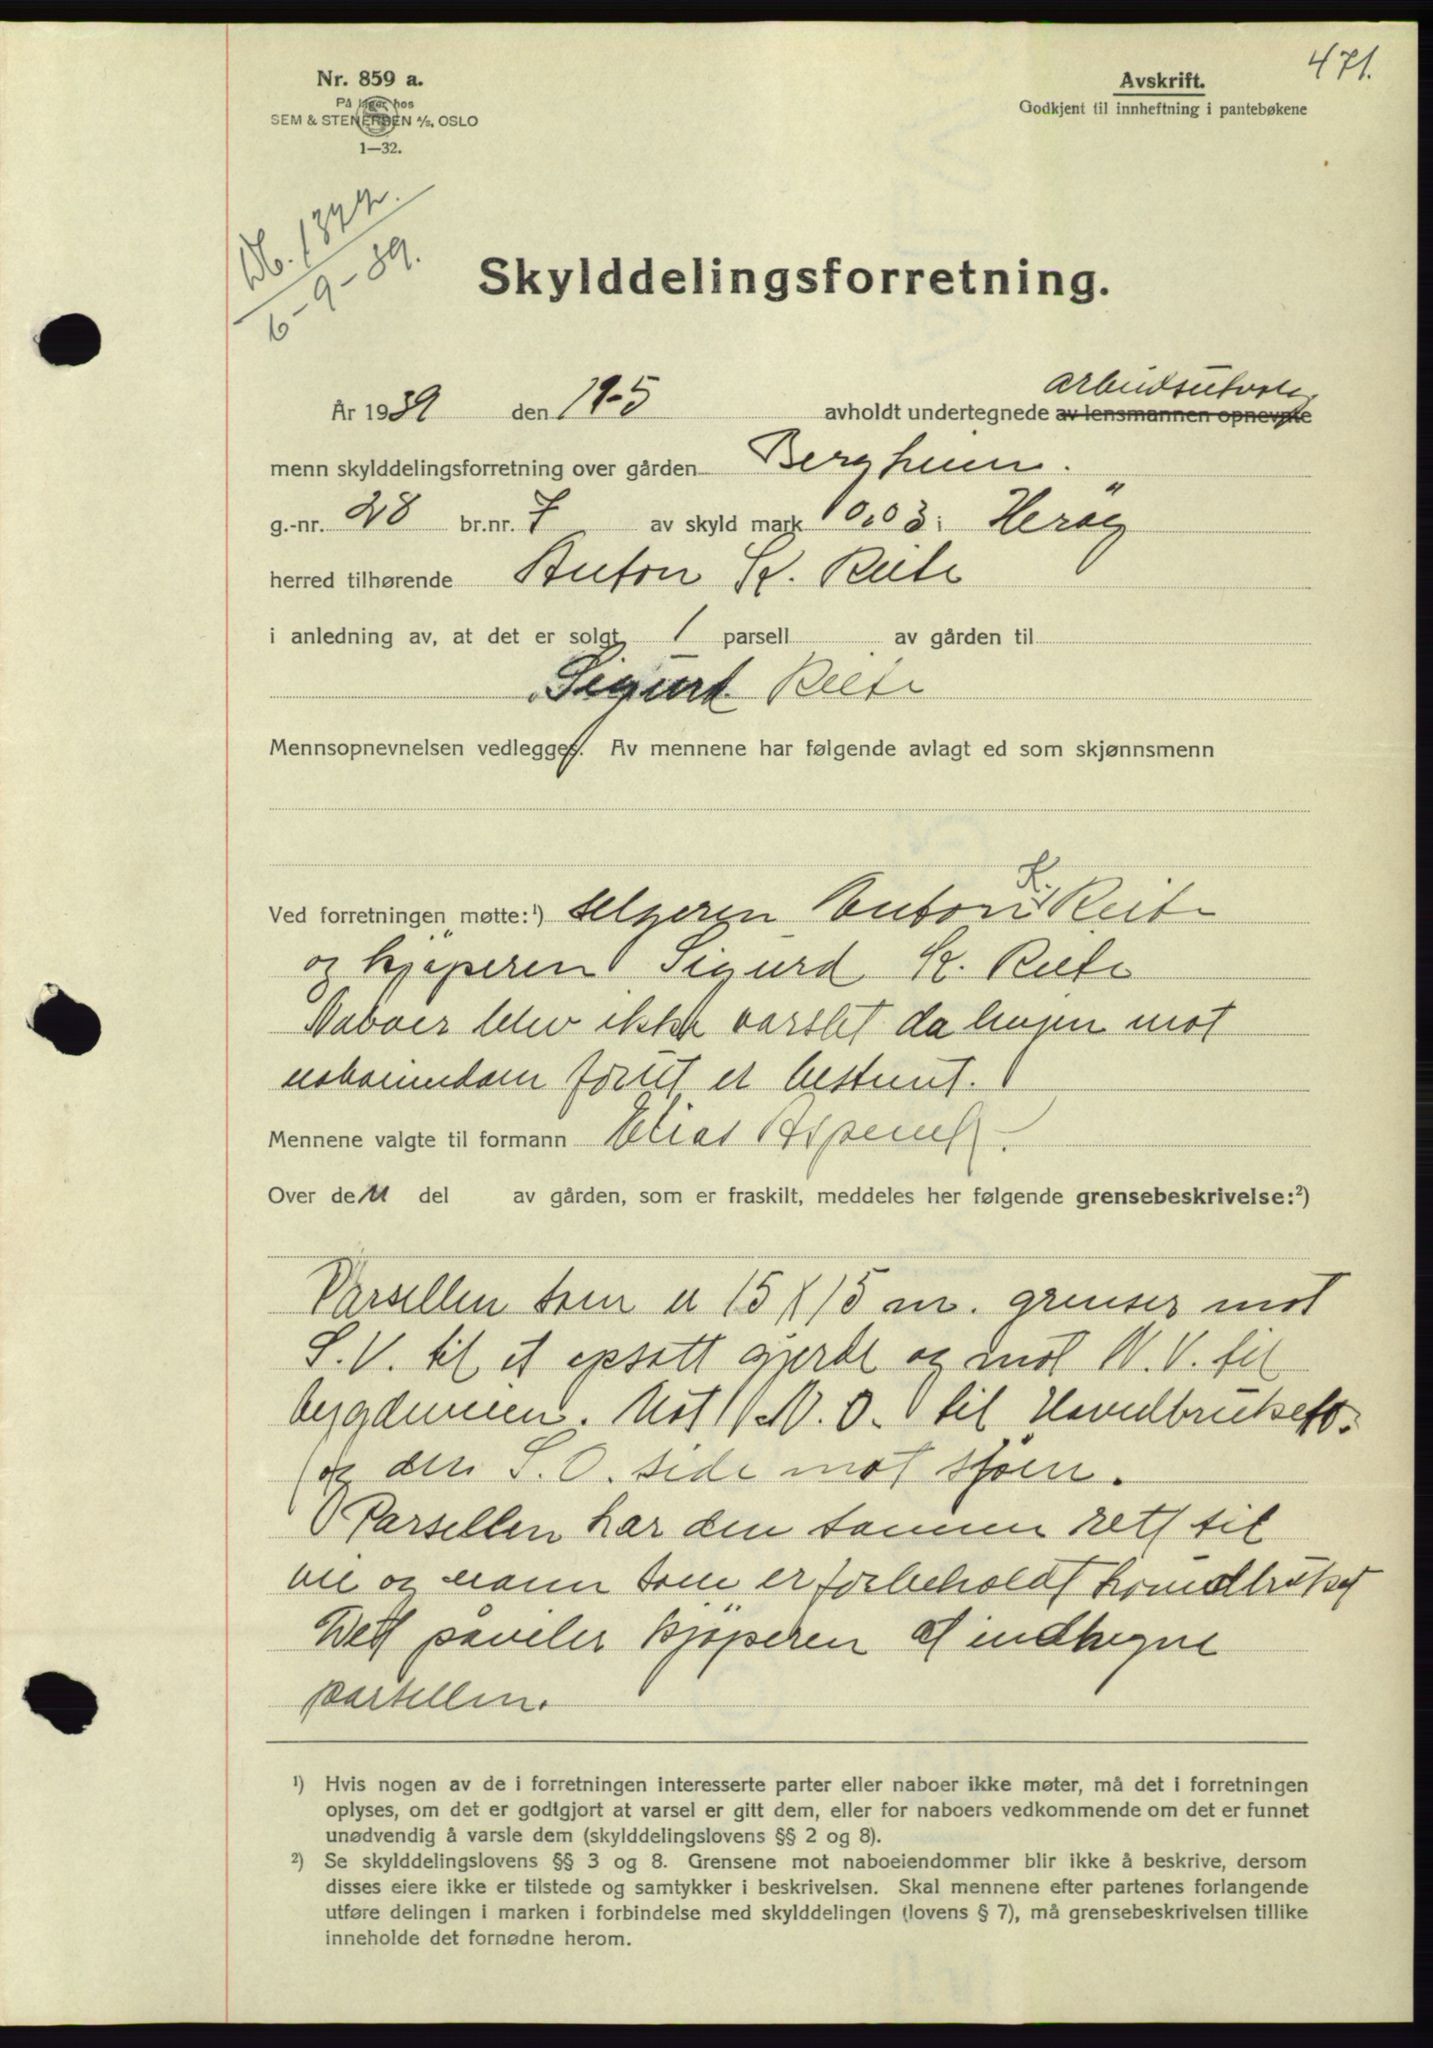 471.
Nr. 859 a.
På lager hos
SEM & STENERSEN A/S, OSLO
1—32.
Avskrift.
Godkjent til innheftning i pantebøkene
6-9-39.
Skylddelingsforretning.
År 1939 den 19-5 avholdt undertegnede av lensmannen opnevnte arbeidsutvalg
menn skylddelingsforretning over gården Bergheim.
g.-nr. 28 br.nr. 7 av skyld mark 0,03 i Heröy
herred tilhørende Anton K. Reite
i anledning av, at det er solgt 1 parsell av gården til
Sigurd Reite
Mennsopnevnelsen vedlegges. Av mennene har følgende avlagt ed som skjønnsmenn
Ved forretningen møtte:¹) selgeren Anton K. Reite
og kjöperen Sigurd K. Reite
Naboer blev ikke varslet da linjen mot
naboeiendom forut er bestemt.
Mennene valgte til formann Elias
Over den del av gården, som er fraskilt, meddeles her følgende grensebeskrivelse:²)
Parsellen som er 15 X 15 m. grenser mot
S.V. til et opsatt gjerde og mot N.V. til
bygdeveien. Mot N.O. til Hovedbruket.
og den S.O. side mot sjöen.
Parsellen har den samme rett til
vei og vann som er forbeholdt hovedbruket
Det påviler kjöperen at indhegne
parsellen.
¹) Hvis nogen av de i forretningen interesserte parter eller naboer ikke møter, må det i forretningen
oplyses, om det er godtgjort at varsel er gitt dem, eller for naboers vedkommende om det er funnet
unødvendig å varsle dem (skylddelingslovens §§ 2 og 8).
²) Se skylddelingslovens §§ 3 og 8. Grensene mot naboeiendommer blir ikke å beskrive, dersom
disses eiere ikke er tilstede og samtykker i beskrivelsen. Skal mennene efter partenes forlangende
utføre delingen i marken i forbindelse med skylddelingen (lovens § 7), må grensebeskrivelsen tillike
inneholde det fornødne herom.